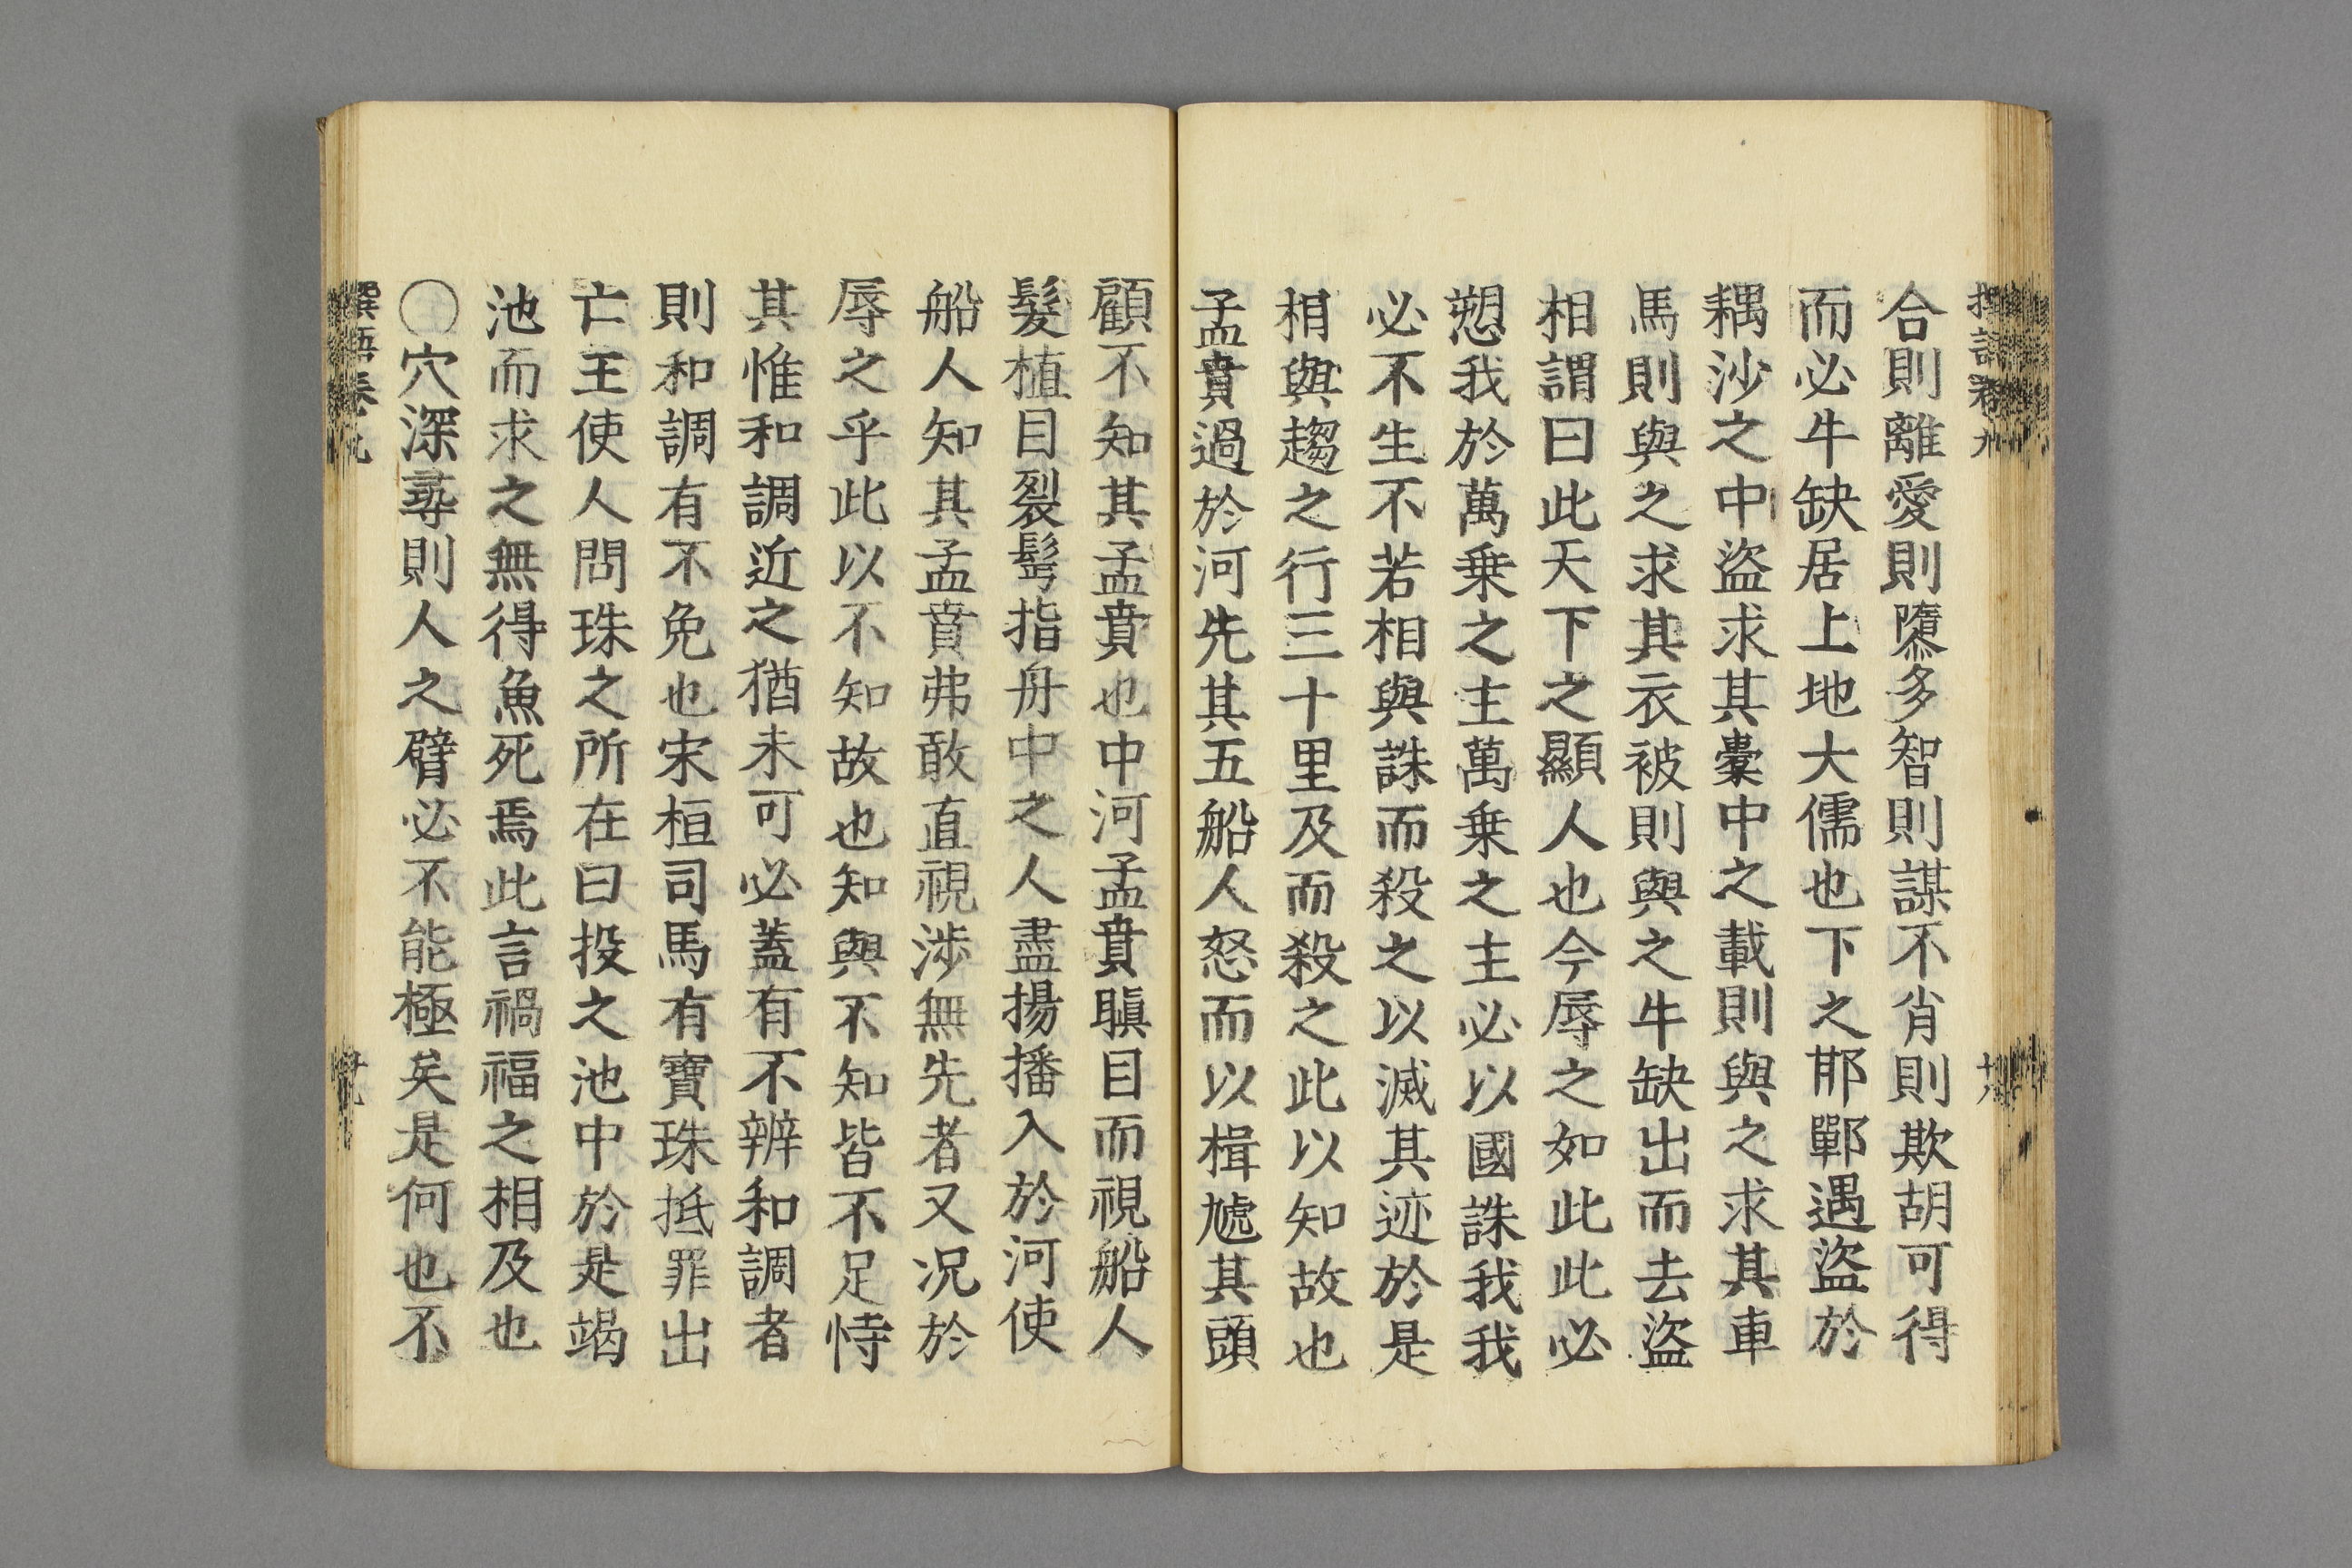 合則離愛則隳多智則謀不肖則欺胡可得
而必牛缺居上地大儒也下之邯鄲遇盜於
耦沙之中盜求其橐中之載則與之求其車
馬則與之求其衣被則與之牛缺出而去盜
相謂曰此天下之顯人也今辱之如此此必
愬我於萬乗之主萬乗之主必以國誅我我
必不生不若相與誅而殺之以滅其迹於是
相與趨之行三十里及而殺之此以知故也
孟賁過於河先其五船人怒而以楫虓其頭
顧不知其孟賁也中河孟賁瞋目而視船人
髮植目裂髩指舟中之人盡揚播入於河使
船人知其孟賁弗敢直視涉無先者又况於
辱之乎此以不知故也知與不知皆不足恃
其惟和調近之猶未可必蓋有不辨和調者
則和調有不免也宋桓司馬有寶珠抵罪出
亡王使人問珠之所在曰投之池中於是竭
池而求之無得魚死焉此言禍福之相及也
○穴深尋則人之臂必不能極矣是何也不